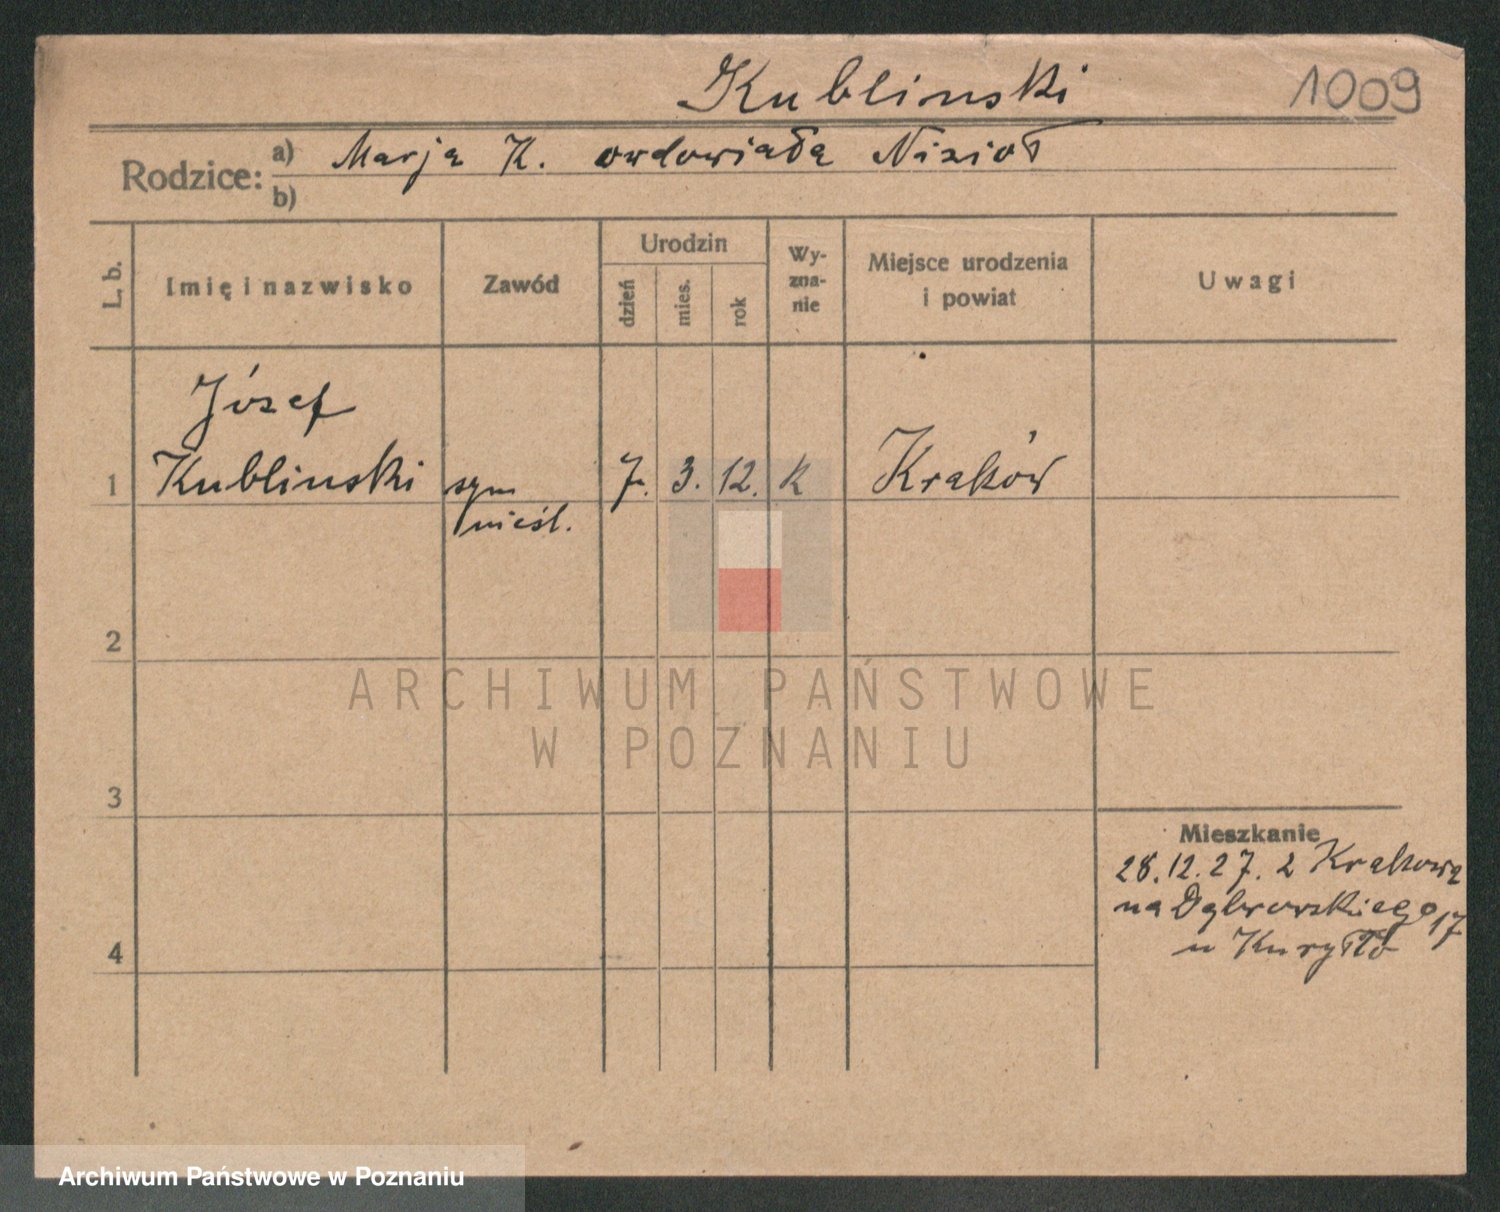 Kublinski 1009
Rodzice: a) Marja K. owdowiała Nizioł
b)
L. b. Imię i nazwisko Zawód Urodzin dzień mies. rok Wy-
zna-
nie Miejsce urodzenia
i powiat Uwagi
Józef
1 Kublinski 7. 3. 12. K Kraków
nieśl.
2
ARCHIWUM PAŃSTWOWE
W POZNANIU
3
Mieszkanie
28.12.27. z Krakowa
na Dąbrowskiego 17
u Kuryłło
4
Archiwum Państwowe w Poznaniu